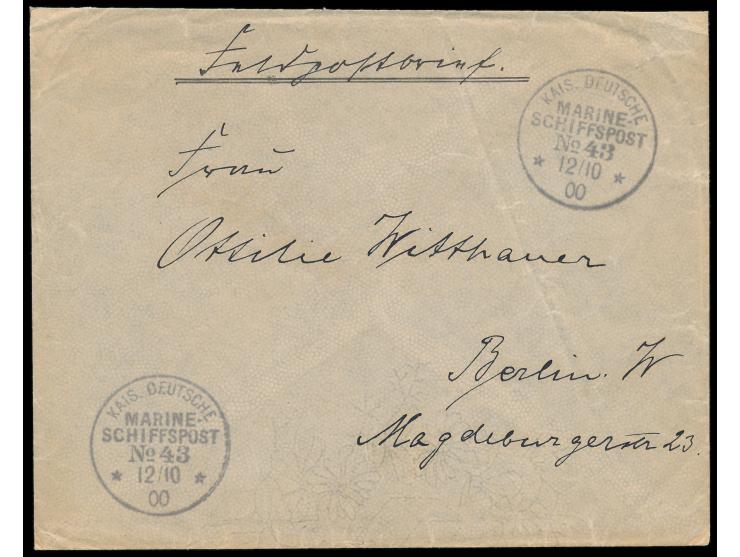 Feldpostbrief.
KAIS. DEUTSCHE
MARINE-
SCHIFFSPOST
No 43
* 12/10 *
00
Frau
Ottilie Witthauer
Berlin. W
Magdeburgerstr 23.
KAIS. DEUTSCHE
MARINE-
SCHIFFSPOST
No 43
* 12/10 *
00